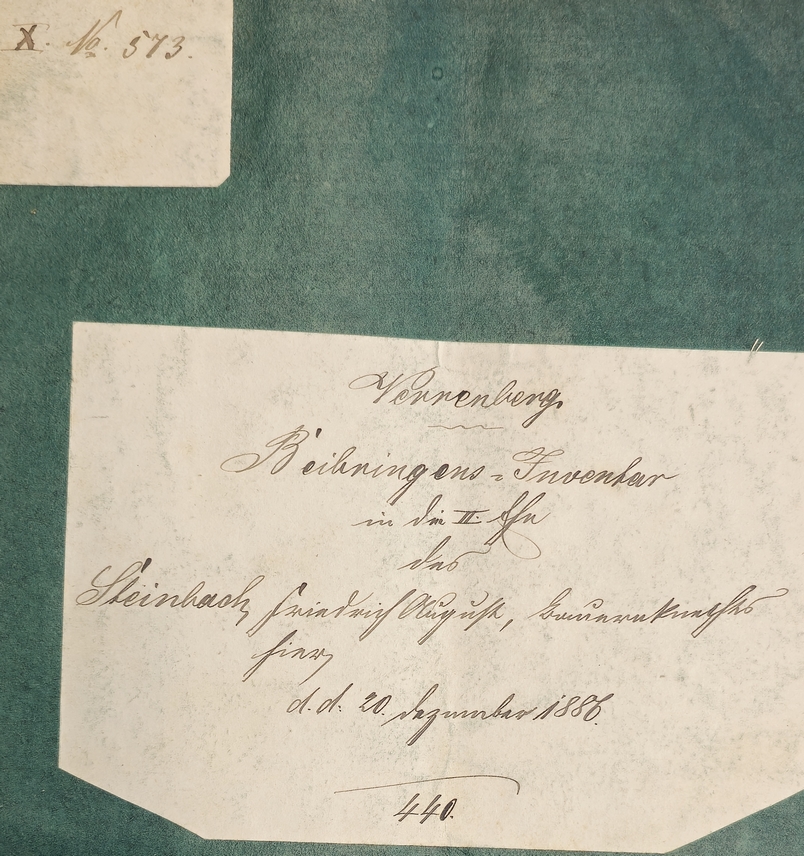 X. No. 573.
Verrenberg.
Beibringens-Inventar
in die II. Ehe
des
Steinbach, Friedrich August, Bauernknechts
hier,
d. d. 20. Dezember 1886.
440.